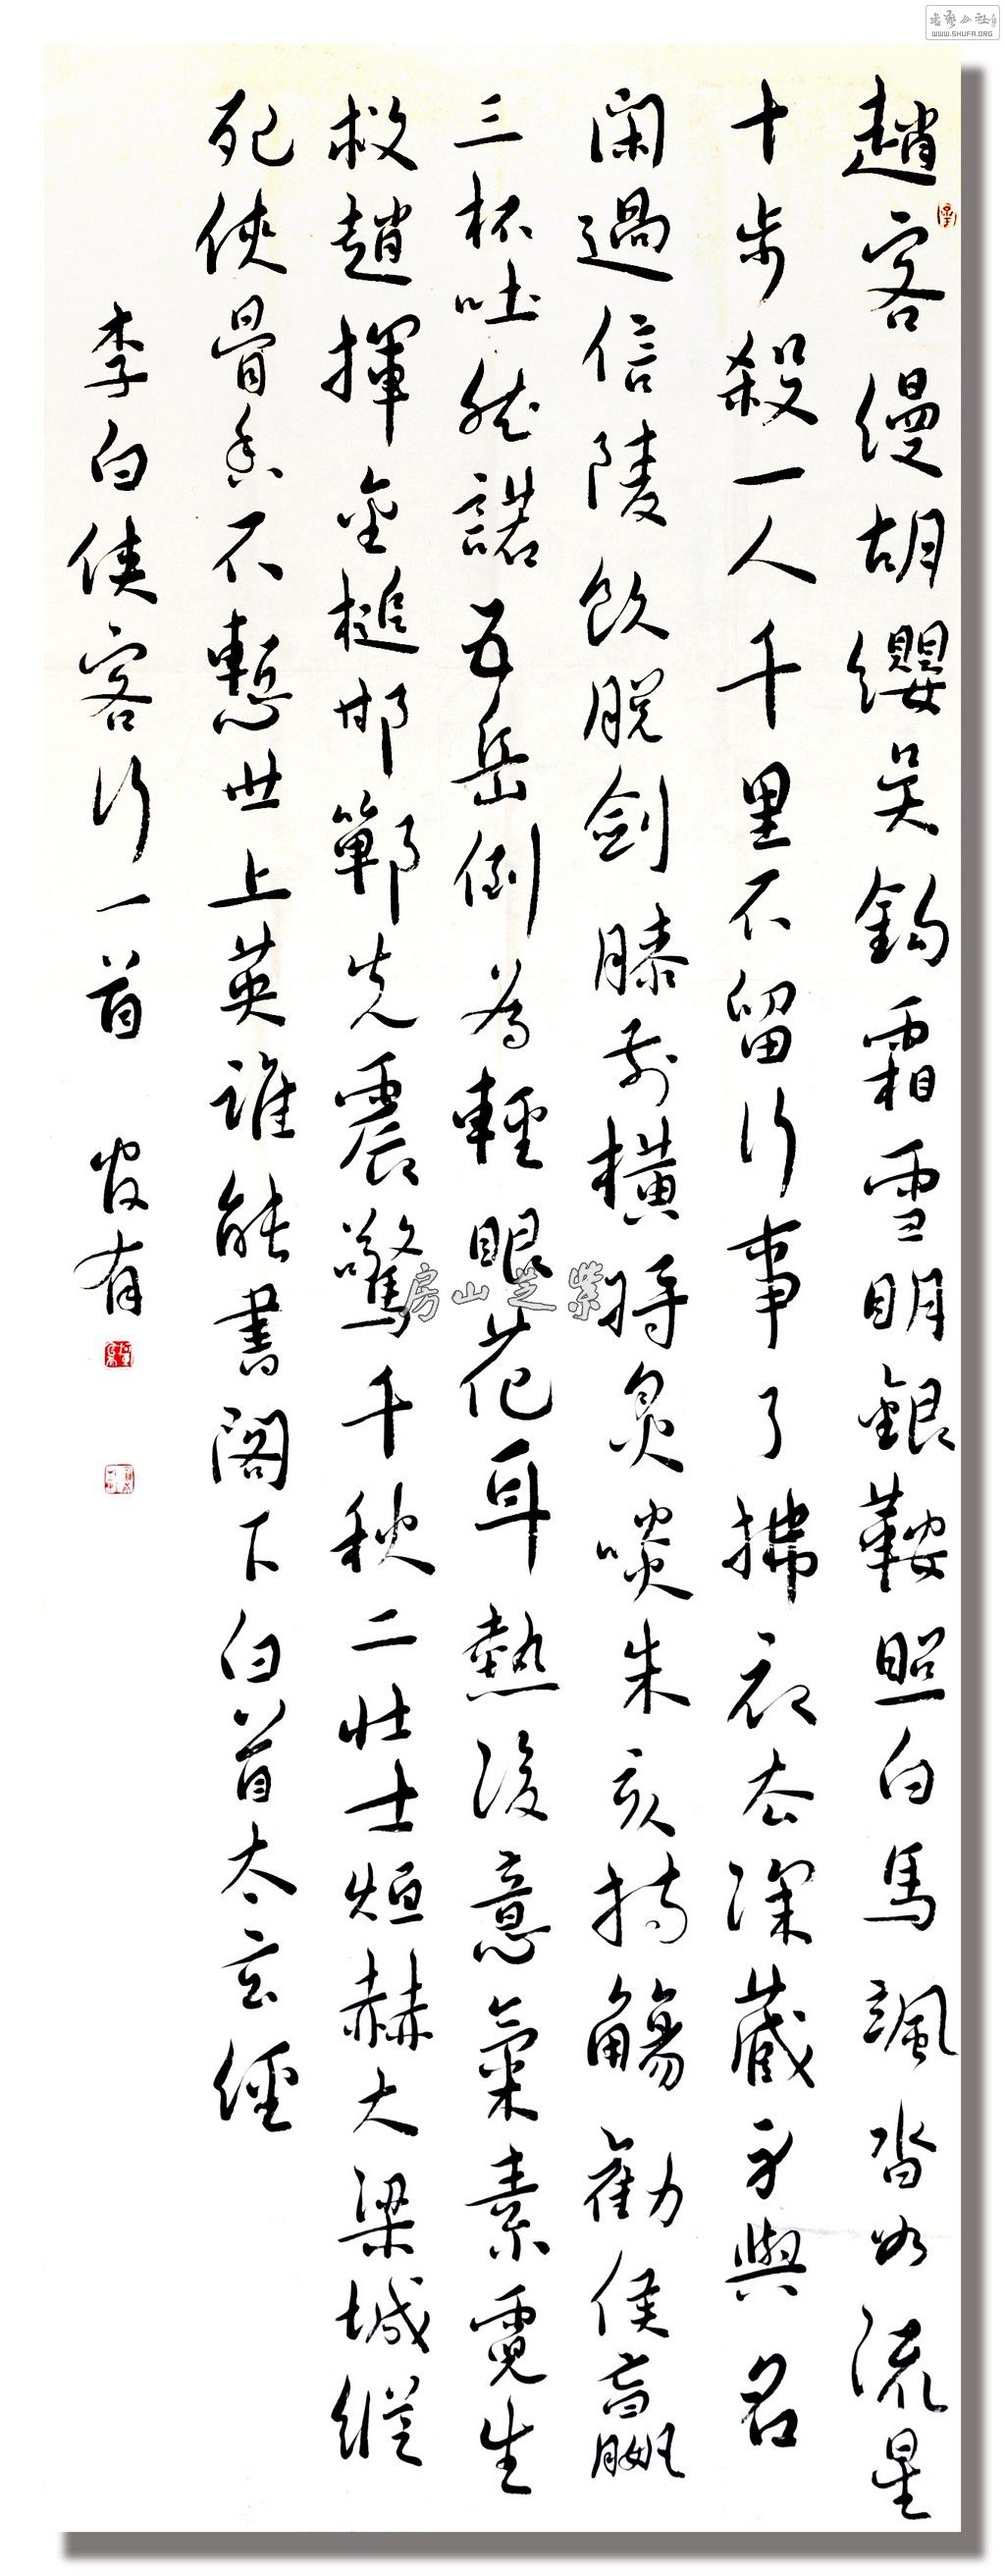 趙客縵胡纓吳鈎霜雪明銀鞍照白馬颯沓如流星
十步殺一人千里不留行事了拂衣去深藏身與名
閑過信陵飲脫劍膝前橫將炙啖朱亥持觴勸侯嬴
三杯吐然諾五岳倒為輕眼花耳熱後意氣素霓生
救趙揮金槌邯鄲先震驚千秋二壯士烜赫大梁城縱
死俠骨香不慙世上英誰能書閣下白首太玄經
李白俠客行一首 有
房山芝紫
書藝公社
WWW.SHUFA.ORG